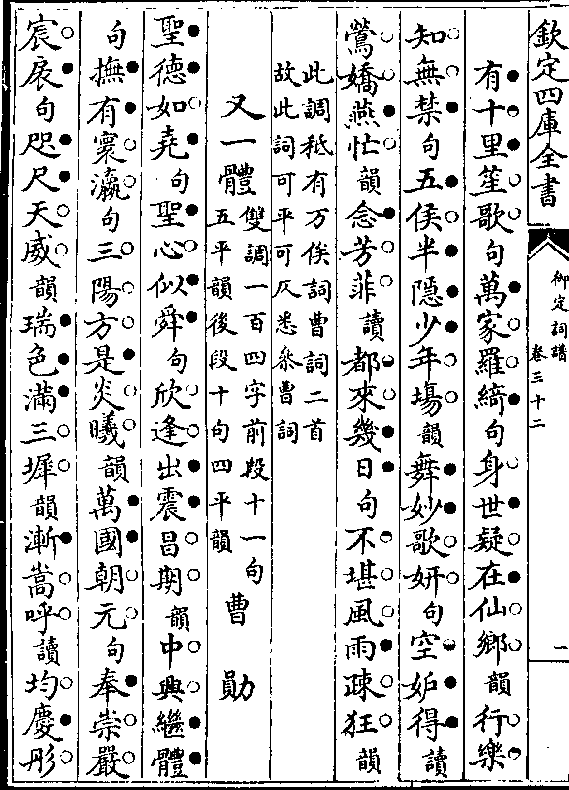 欽定四庫全書
御定詞譜
卷三十二
一
有十里笙歌句萬家羅綺句身世疑在仙鄉韻行樂
知無禁句五侯半隱少年塲韻舞妙歌妍句空妒得讀
鶯嬌燕忙韻念芳菲讀都來幾日句不堪風雨疎狂韻
此調秪有万俟詞曹詞二首
故此詞可平可仄悉叅曹詞
又一體雙調一百四字前段十一句
五平韻後段十句四平韻
曹勛
聖德如堯句聖心似舜句欣逢出震昌期韻中興繼體
句撫有寰瀛句三陽方是炎曦韻萬國朝元句奉崇嚴
宸扆句咫尺天威韻瑞色滿三墀韻漸嵩呼讀均慶彤